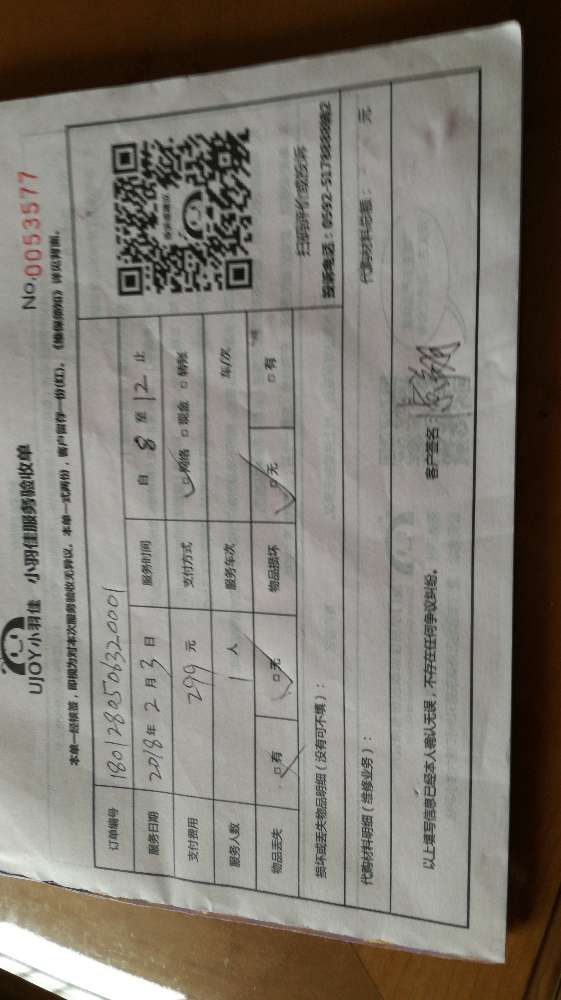 UJOY小羽佳 小羽佳服务验收单
No.0053577
本单一经核签，即视为对本次服务验收无异议。本单一式两份，客户留存一份(红)。《维保须知》详见背面。
订单编号 1801280506320001
服务日期 2018年2月3日 服务时间 自 8 至 12 止
支付费用 299 元 支付方式 □网络 □现金 □转账
服务人数 1 人 服务车次 车/次
物品丢失 □有 □无 物品损坏 □无 □有
扫码评价或投诉
损坏或丢失物品明细（没有可不填）：
代购材料明细（维修业务）： 代购材料总额： 元
以上填写信息已经本人确认无误，不存在任何争议纠纷。 客户签名：